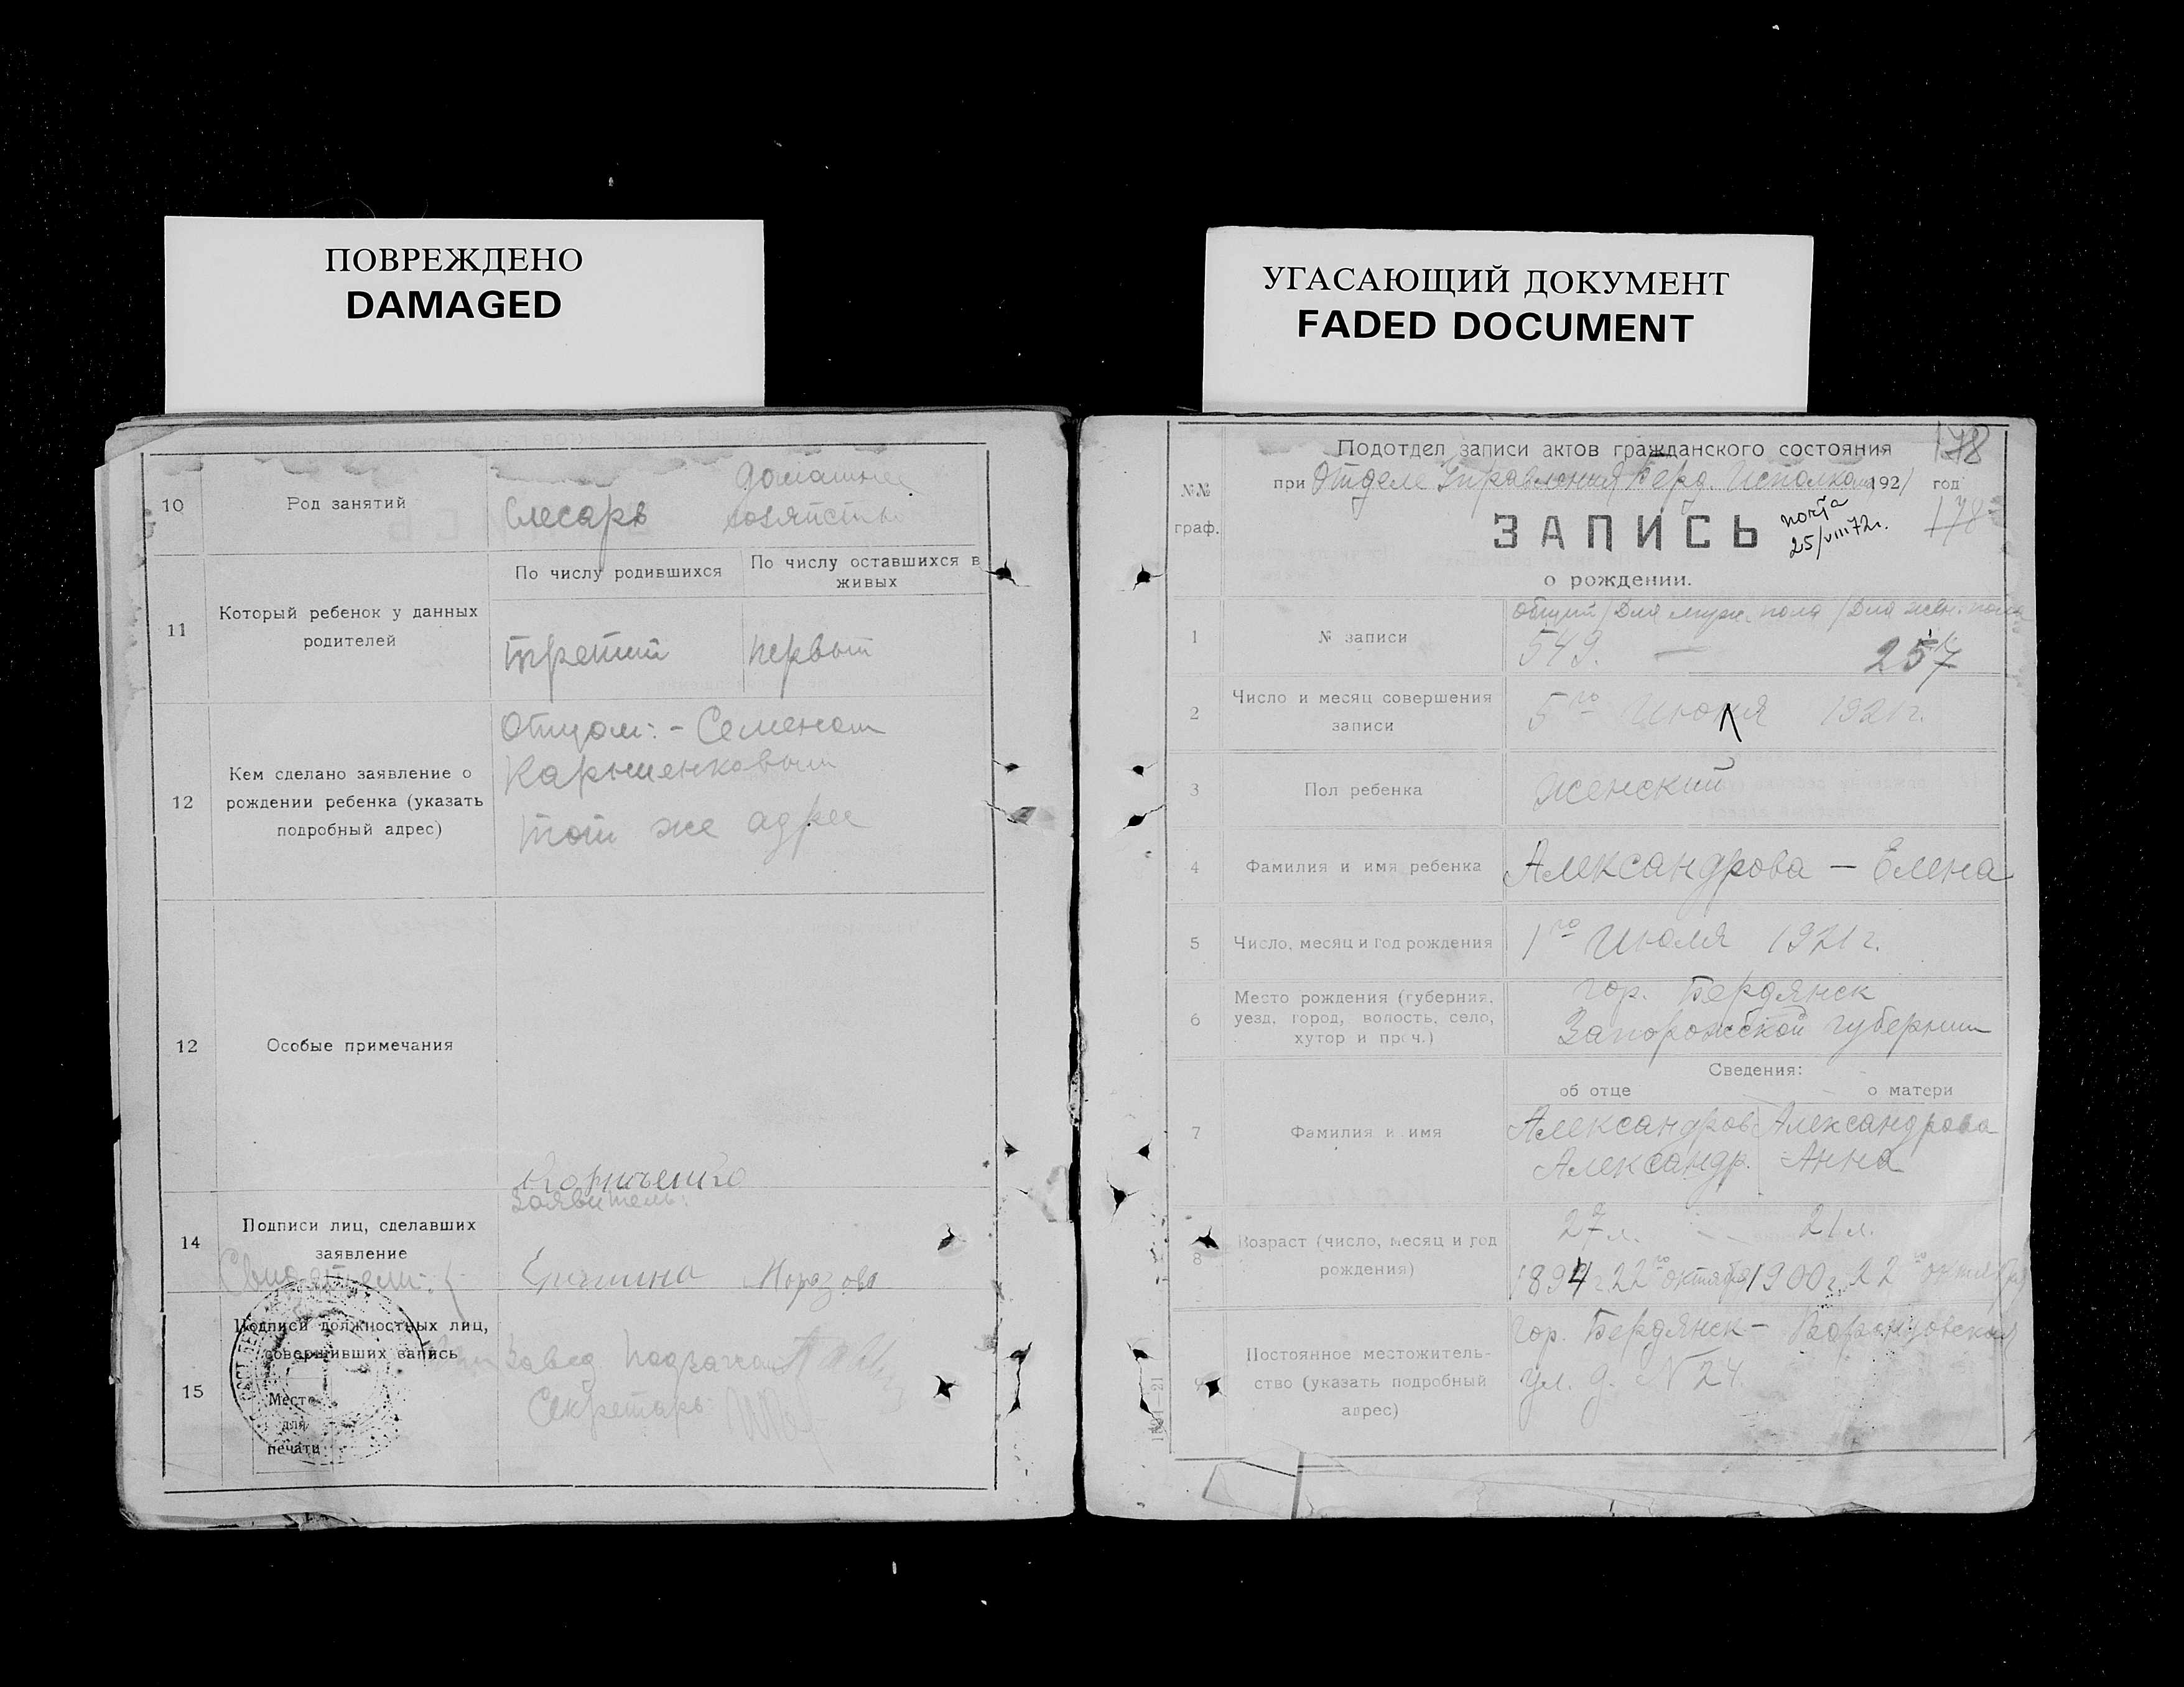 ПОВРЕЖДЕНО
DAMAGED
10
Род занятий
Слесарь
домашнее
хозяйство
11
Который ребенок у данных
родителей
По числу родившихся
По числу оставшихся в
живых
третий
первый
12
Кем сделано заявление о
рождении ребенка (указать
подробный адрес)
Отцом: - Семеном
тот же адрес
12
Особые примечания
14
Подписи лиц, сделавших
заявление
Свидетели:
Заявитель:
15
Подписи должностных лиц,
совершивших запись
Место
для
печати
Завед.
Секретарь
УГАСАЮЩИЙ ДОКУМЕНТ
FADED DOCUMENT
№№
граф.
Подотдел записи актов гражданского состояния
178
при Отделе Управления Берд. Исполкома 1921 год
ЗАПИСЬ
25/VIII 72г.
178
о рождении.
1
№ записи
Общий / Для муж. пола / Для жен. пола
549. — 257
2
Число и месяц совершения
записи
5го Июля 1921г.
3
Пол ребенка
женский
4
Фамилия и имя ребенка
Александрова — Елена
5
Число, месяц и год рождения
1го Июля 1921г.
6
Место рождения (губерния,
уезд, город, волость, село,
хутор и проч.)
гор. Бердянск
Запорожской губернии
Сведения:
об отце
о матери
7
Фамилия и имя
Александров
Александр.
Александрова
Анна
8
Возраст (число, месяц и год
рождения)
27 л. — 21 л.
1894 г. 22го октября 1900 г. 22го октября
9
Постоянное местожитель-
ство (указать подробный
адрес)
гор. Бердянск - Воронцовская
ул. д. № 24.